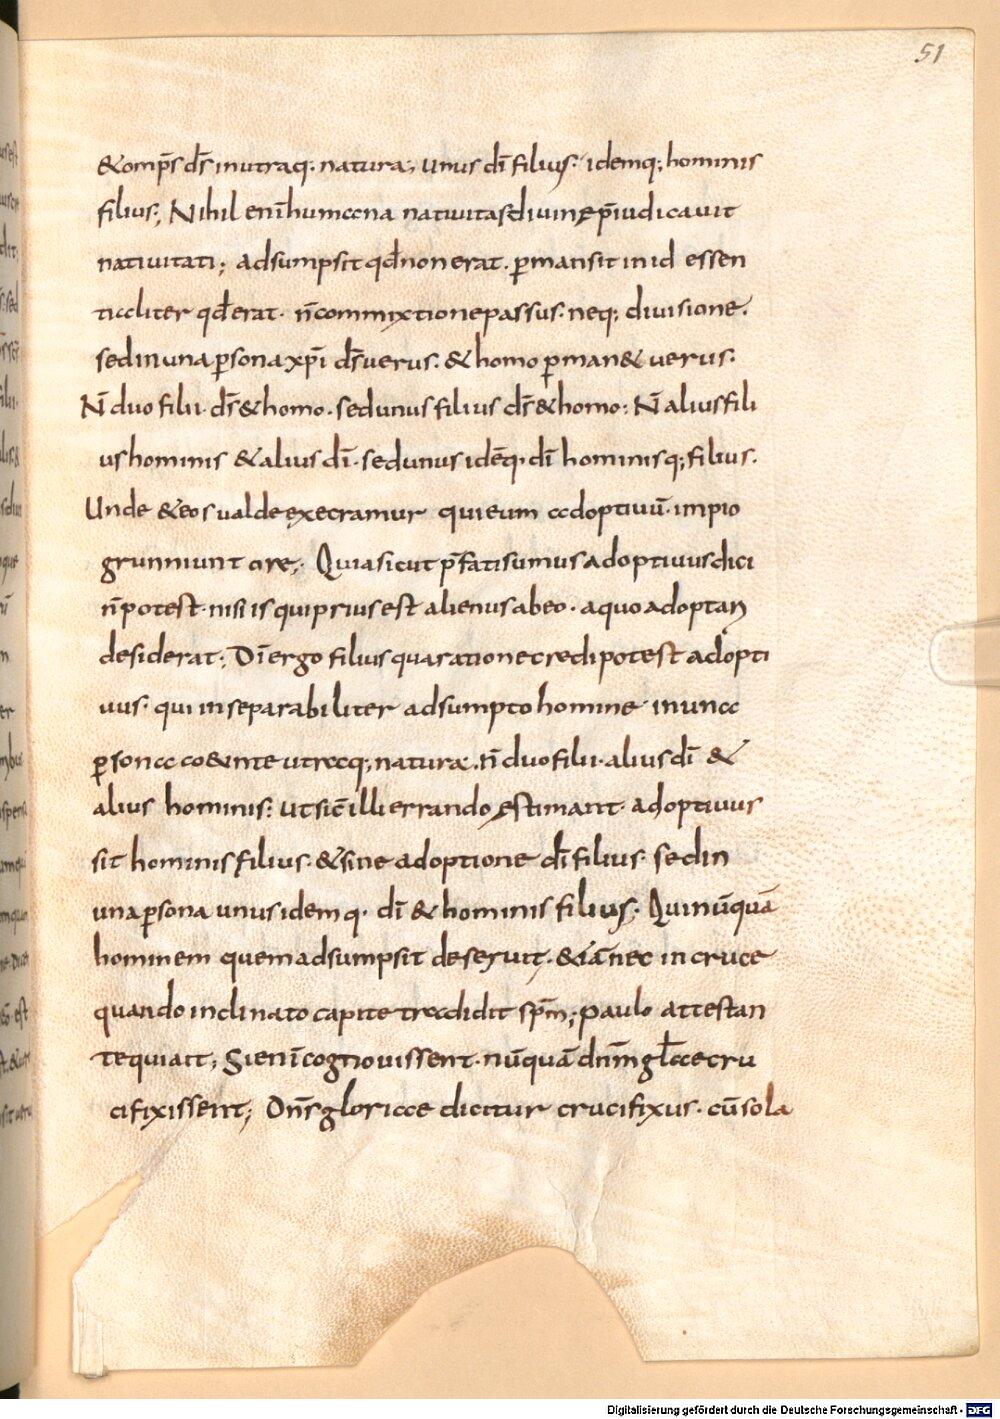 51
&omp̄s d̄s inutraq· natura, unus dī filius· idemq; hominis
filius; Nihil enī humana nativitas divinę p̄iudicavit
nativitati; adsumpsit qd̄ non erat· p̱mansit in id essen
tialiter qd̄ erat· n̄ commixtione passus· neq; divisione·
sed in una p̱sona xp̄i d̄s verus· & homo p̱man& verus·
N̄ duo filii· d̄s & homo· sed unus filius d̄s & homo: N̄ alius fili
us hominis & alius dī· sed unus idēq· dī hominisq; filius·
Unde & eos valde execramur qui eum adoptivū· impio
grunniunt ore;· Quia sicut p̄fati sumus adoptivus dici
n̄ potest· nisi is qui prius est alienus ab eo· a quo adoptari
desiderat; Dī ergo filius qua ratione credi potest adopti
vus· qui inseparabiliter adsumpto homine· in una
p̱sona co&inte utraq; natura· n̄ duo filii· alius dī &
alius hominis: ut sic̄ illi errando ęstimant· adoptivus
sit hominis filius· & sine adoptione dī filius· sed in
una p̱sona unus idemq· dī & hominis filius;· Qui nūquā
hominem quem adsumpsit deseruit·& iā nec in cruce
quando inclinato capite tradidit sp̄m; paulo attestan
te qui ait; Si enī cognovissent· nūquā dn̄m gl̄ae cru
cifixissent; Dn̄s gloriae dicitur crucifixus· cū sola
Digitalisierung gefördert durch die Deutsche Forschungsgemeinschaft - DFG